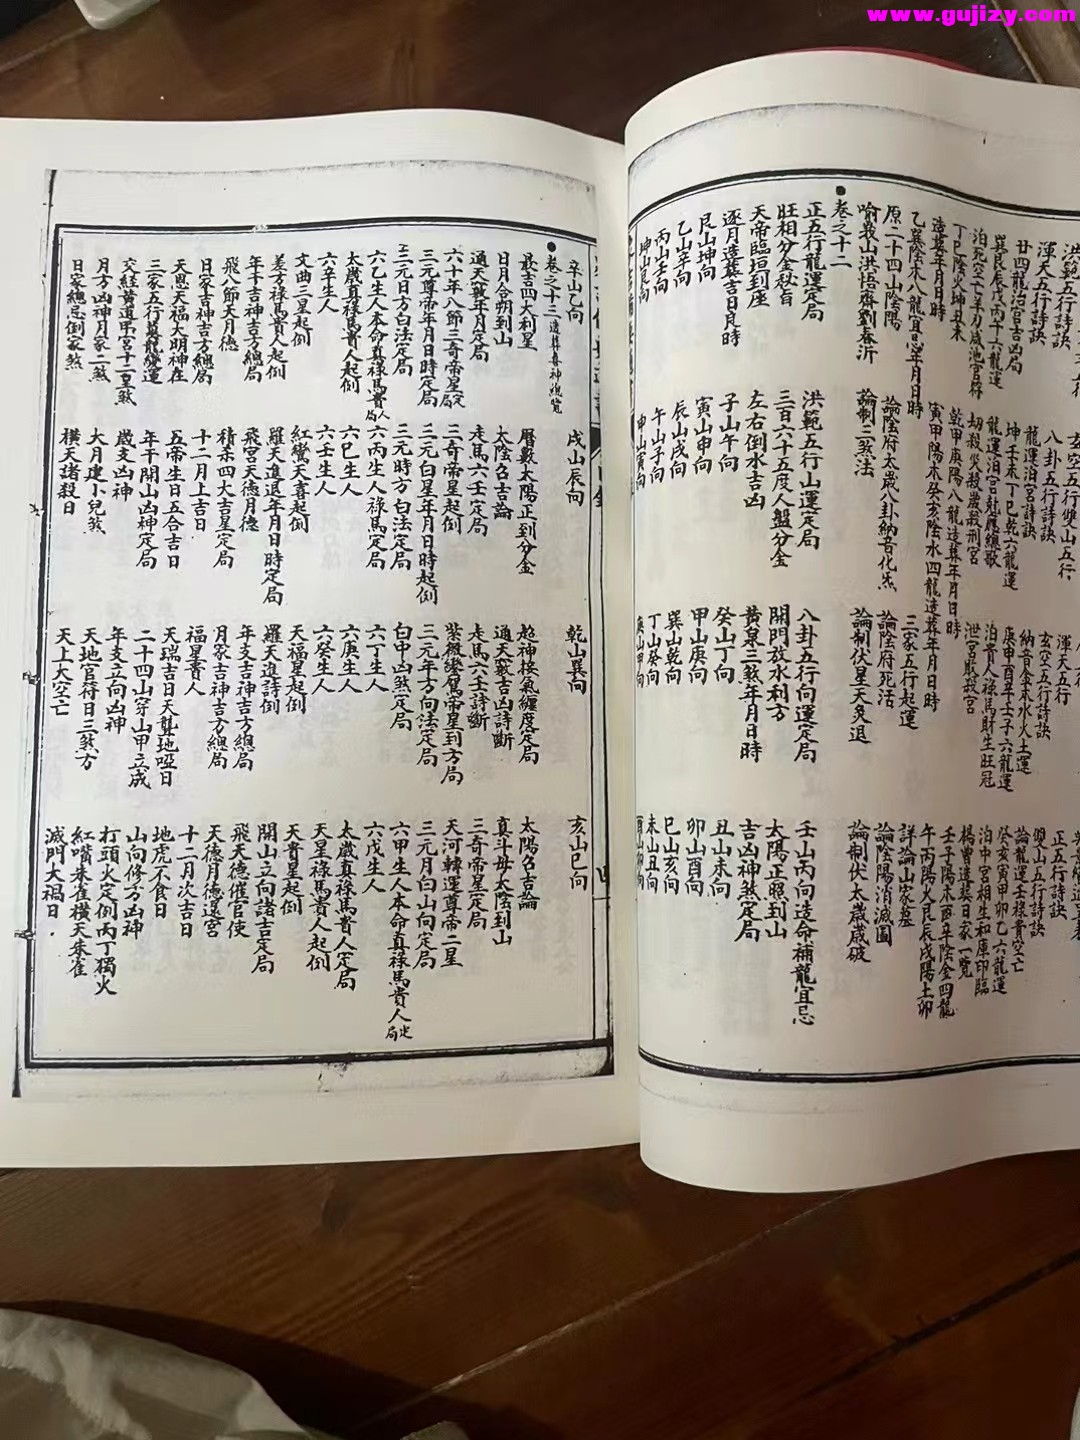 洪範五行詩訣 玄空五行雙山五行 渾天五行 正五行詩訣
渾天五行詩訣 八卦五行詩訣 玄空五行詩訣 雙山五行詩訣
廿四龍泊宮吉凶局 龍運泊宮詩訣 納音金木水火土運 論龍運壬祿貴空亡
巽艮辰戌丙午六龍運 坤壬未丁巳乾六龍運 庚申酉辛壬子六龍運 癸亥寅甲卯乙六龍運
泊死空亡羊刃歲池宮符 龍運泊宮尅應總歌 泊貴人祿馬財生旺冠 泊中宮相生和庫印臨
丁巳陰火坤丑未 劫殺災殺歲殺刑宮 楊曾造葬日家一覽
造葬年月日時 乾甲庚陽八龍造葬年月日時 壬子陽木酉辛陰金四龍
乙巽陰木八龍宜忌年月日時 寅甲陽木癸亥陰水四龍造葬年月日時 午丙陽火艮辰戌陽土卯
原二十四山陰陽 論陰府太歲八卦納音化炁 三家五行起運 詳論山家墓
喻義山洪悟齋劉春沂 論制三煞法 論陰府死活 論陰陽消滅圖
論制伏星天灸退 論制伏太歲歲破
●卷之十二
正五行龍運定局 洪範五行山運定局 八卦五行向運定局 壬山丙向造命補龍宜忌
旺相分金秘旨 三百六十五度人盤分金 開門放水利方 太陽正照到山
天帝臨垣到座 左右倒水吉凶 黃泉三煞年月日時 吉凶神煞定局
逐月造葬吉日良時 子山午向 癸山丁向 丑山未向
艮山坤向 寅山申向 甲山庚向 卯山酉向
乙山辛向 辰山戌向 巽山乾向 巳山亥向
丙山壬向 午山子向 丁山癸向 未山丑向
坤山艮向 申山寅向 庚山甲向 酉山卯向
辛山乙向 戌山辰向 乾山巽向 亥山巳向
●卷之十三造葬喜神總覽
最吉四大利星 曆數太陽正到分金 超神接氣纏度定局 太陽名吉論
日月合朔到山 太陰名吉論 通天竅吉凶詩斷 真斗母太陰到山
通天竅年月定局 走馬六壬定局 走馬六壬詩斷 三奇帝星定局
六十年八節三奇帝星定局 三奇帝星起倒 紫微鑾駕帝星到方局 天河轉運尊帝二星
三元尊帝年月日時定局 三元白星年月日時起倒 三元年方向法定局 三元月白山向定局
三元日方白法定局 三元時方白法定局 白中凶煞定局 六甲生人本命真祿馬貴人定局
六乙生人本命真祿馬貴人局 六丙生人祿馬定局 六丁生人 六戊生人
太歲真祿馬貴人起倒 六巳生人 六庚生人 太歲真祿馬貴人定局
六辛生人 六壬生人 六癸生人 天星祿馬貴人起倒
文曲三星起倒 紅鸞天喜起倒 天福星起倒 天貴星起倒
差方祿馬貴人起倒 羅天進退年月日時定局 羅天進詩倒 開山立向諸吉定局
年干吉神吉方總局 飛宮天德月德 年支吉神吉方總局 飛天德催官使
飛八節天月德 積柒四大吉星定局 月家吉神吉方總局 天德月德還宮
日家吉神吉方總局 十二月上吉日 福星貴人 十二月次吉日
天恩天福大明神在 五帝生日五合吉日 天瑞吉日天聾地啞日 地虎不食日
三家五行墓龍變運 年干開山凶神定局 二十四山穿山甲立成 山向修方凶神
交經黃道弔宮十二星煞 歲支凶神 年支立向凶神 打頭火定倒丙丁獨火
月方凶神月家二煞 大月建小兒煞 天地官符日三煞方 紅嘴朱雀橫天朱雀
日家總忌倒家煞 橫天諸殺日 天上大空亡 滅門大禍日
四
www.gujizy.com